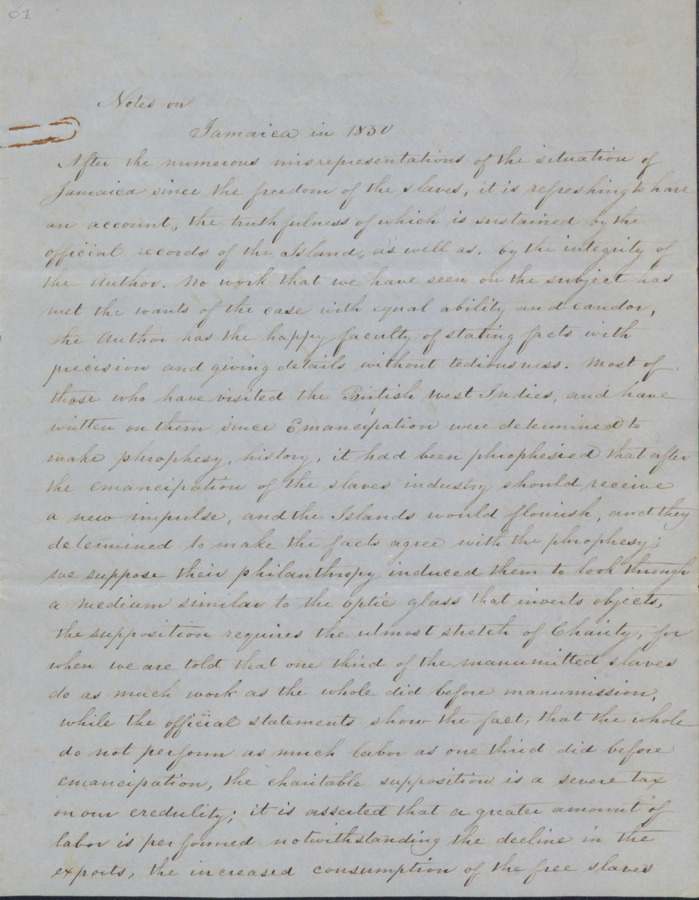 61
Notes on
Jamaica in 1850
After the numerous misrepresentations of the situation of
Jamaica since the freedom of the slaves, it is refreshing to have
an account, the truthfulness of which is sustained by the
official records of the Island, as well as, by the integrity of
the Author. No work that we have seen on the subject has
met the wants of the case with equal ability and candor,
the Author has the happy faculty of stating facts with
precision and giving details without tediousness. Most of
those who have visited the British West Indies, and have
written on them since Emancipation were determined to
make phrophesy, history, it had been phrophesied that after
the emancipation of the slaves industry should receive
a new impulse, and the Islands would flourish, and they
determined to make the facts agree with the phrophesy;
we suppose their philanthropy induced them to look through
a medium similar to the optic glass that inverts objects,
the supposition requires the utmost stretch of Charity, for
when we are told that one third of the manumitted slaves
do as much work as the whole did before manumission,
while the official statements show the fact, that the whole
do not perform as much labor as one third did before
emancipation, the charitable supposition is a severe tax
on our credulity; it is asserted that a greater amount of
labor is performed notwithstanding the decline in the
exports, the increased consumption of the free slaves